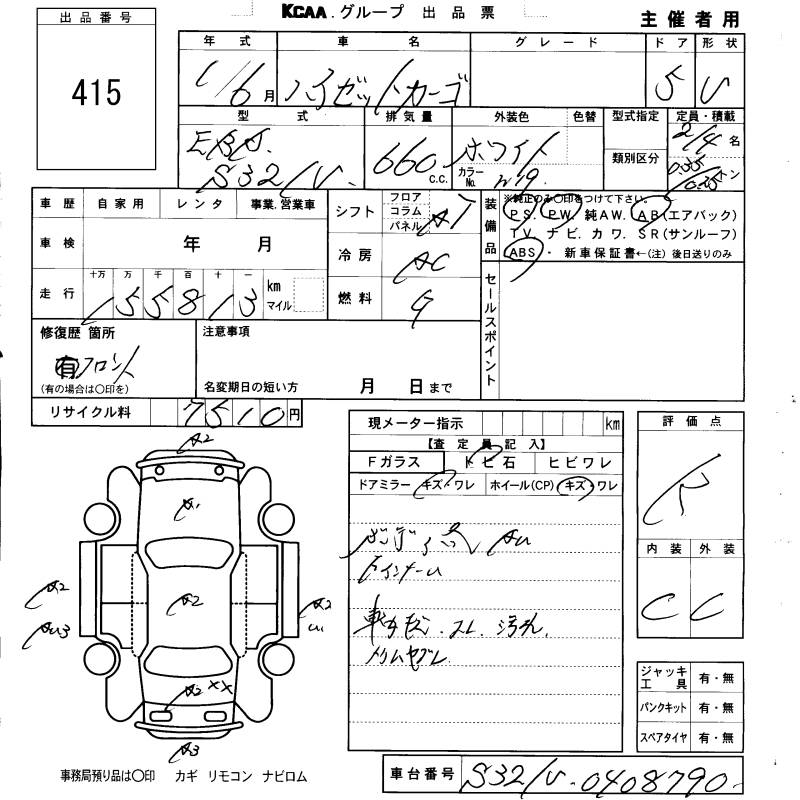 KCAA.グループ 出品票
主催者用
出品番号
415
年式 車名 グレード ドア 形状
6月 ハイゼットカーゴ 5 V
型式 排気量 外装色 色替 型式指定 定員・積載
EBD. 660 c.c. ホワイト 2/4名
S321V. カラーNo. W19. 類別区分 0.35/0.25トン
車歴 自家用 レンタ 事業.営業車
シフト フロア コラム パネル AT
装備品 ※純正のみ〇印をつけて下さい。
PS. PW. 純AW. AB(エアバック)
TV. ナビ. カワ. SR(サンルーフ)
ABS・ 新車保証書←(注)後日送りのみ
車検 年 月
冷房 AC
十万 万 千 百 十 一
走行 155813 km マイル
燃料 G
セールスポイント
修復歴 箇所
有 フロント
(有の場合は〇印を)
注意事項
名変期日の短い方 月 日まで
リサイクル料 7510円
現メーター指示 km
【査定員記入】
Fガラス トビ石 ヒビワレ
ドアミラー キズ・ワレ ホイール(CP) キズ・ワレ
評価点
R
内装 外装
C C
A2
A1
A2
A2
AU3
A2
U1
A2 XX
A3
AU
ジャッキ工具 有・無
パンクキット 有・無
スペアタイヤ 有・無
事務局預り品は〇印 カギ リモコン ナビロム
車台番号 S321V-0408790